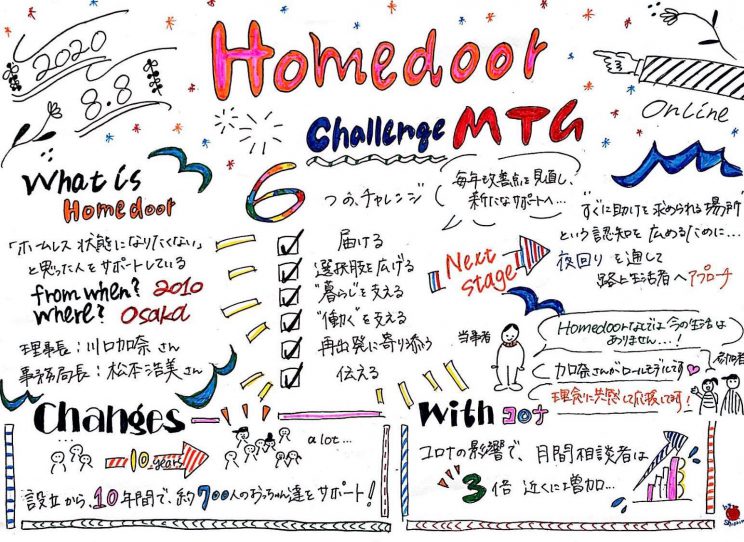 2020
8.8
Homedoor
Challenge MTG
Online
What is
Homedoor
「ホームレス状態になりたくない」
と思った人をサポートしている
from when? 2010
where? Osaka
理事長:川口加奈さん
事務局長:松本浩美さん
6つの、チャレンジ
届ける
選択肢を広げる
"暮らし"を支える
"働く"を支える
再出発に寄り添う
伝える
毎年改善点を見直し、
新たなサポートへ…
Next
stage
"すぐに助けを求められる場所"
という認知を広めるために…
夜回りを通して
路上生活者へアプローチ
当事者
Homedoorなしでは今の生活は
ありません…!
加奈さんがロールモデルです
理念に共感して応援してます!
Changes
10 years
a lot…
設立から、10年間で、約700人のおっちゃん達をサポート!
With コロナ
コロナの影響で、月間相談者は
3倍近くに増加…
by